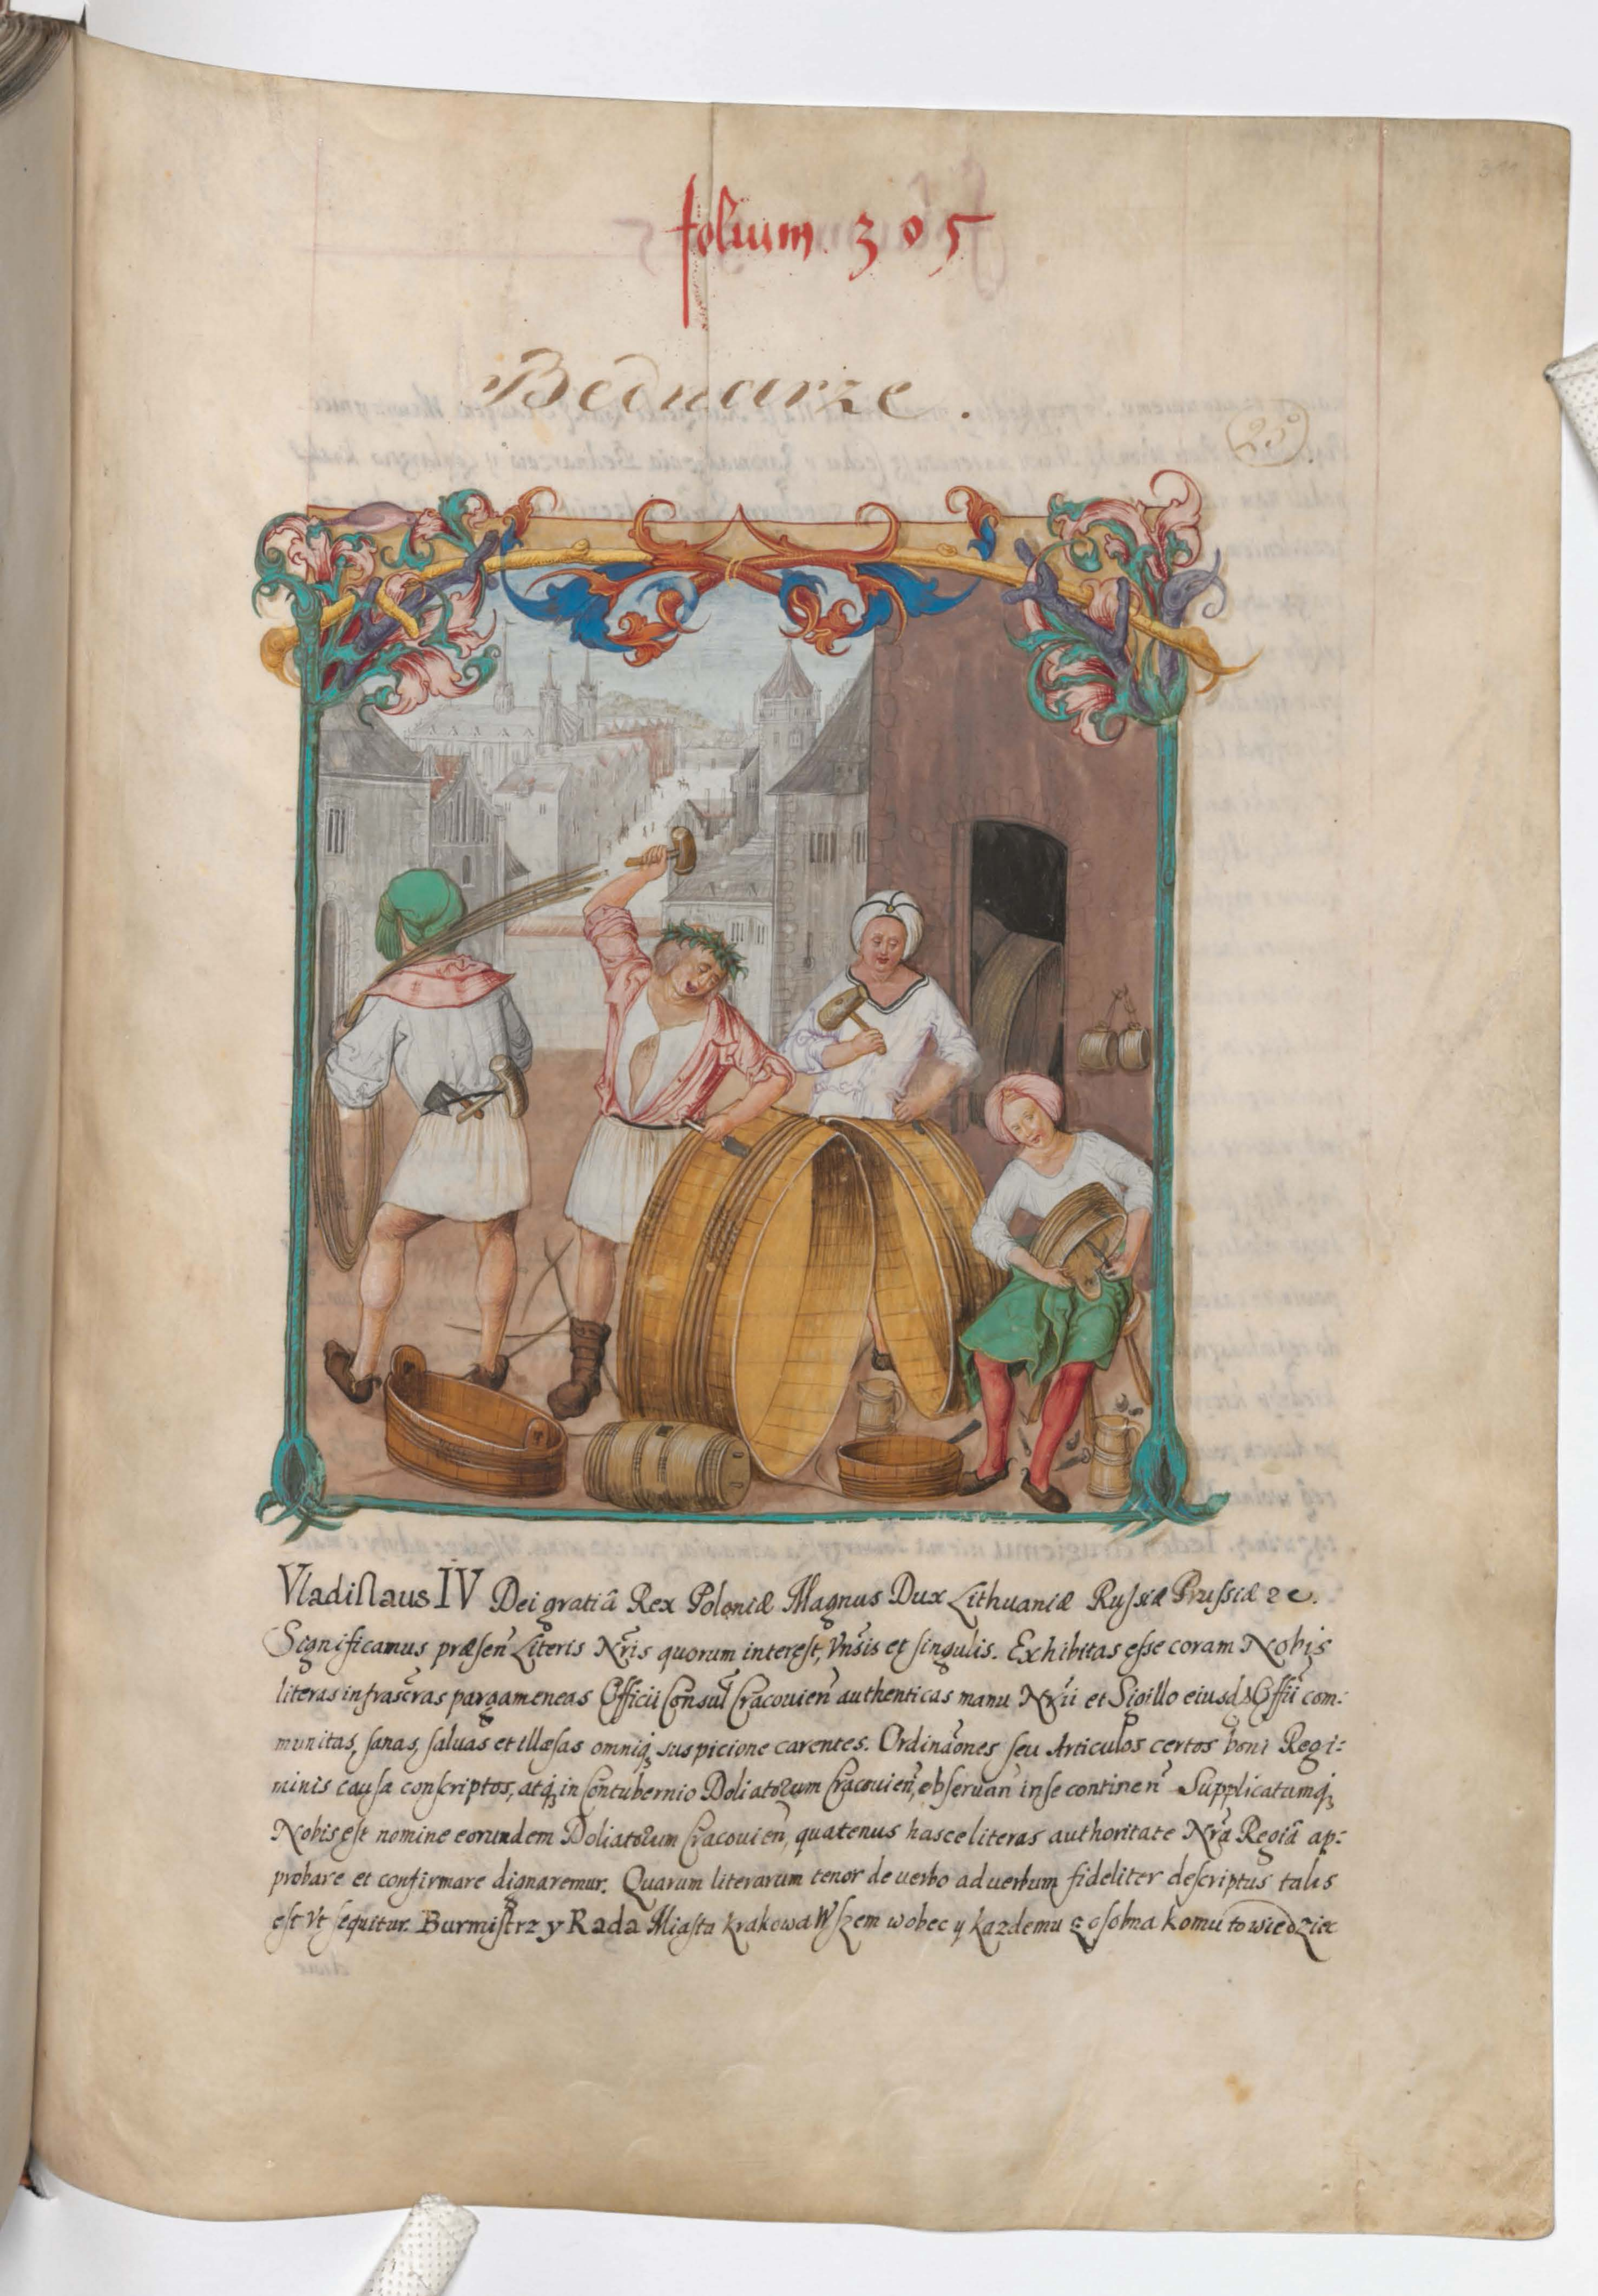 folium 305
Bednarze.
25
Vladiſlaus IV Dei gratiâ Rex Poloniæ Magnus Dux Lithuaniæ Ruſsiæ Pruſsiæ ꝛc.
Significamus præſen̄ Literis Nr̃is quorum intereſt, Vn̄sis et ſingulis. Exhibitas eſse coram Nobis
literas infrascr̃as pargameneas Officii Conſul̃ Cracouien̄ authenticas manu Nr̃ii et Sigillo eiusd Offii com:
munitas, ſanas, ſaluas et illæſas omniq̨ suspicione carentes. Ordinaōnes ſeu Articulos certos boni Regi:
minis cauſa conſcriptos, atq̨ in Contubernio Doliatorum Cracouien̄, obſeruan̄ inſe continen̄ Supplicatumq̨
Nobis eſt nomine eorundem Doliatorum Cracouien̄, quatenus hasce literas authoritate Nr̃a Regiâ ap:
probare et confirmare dignaremur. Quarum literarum tenor de uerbo ad uerbum fideliter deſcriptus talis
eſt Vt ſequitur. Burmiſtrz y Rada Miaſta Krakowa Wſzem wobec y kazdemu z oſobna komu to wiedziec